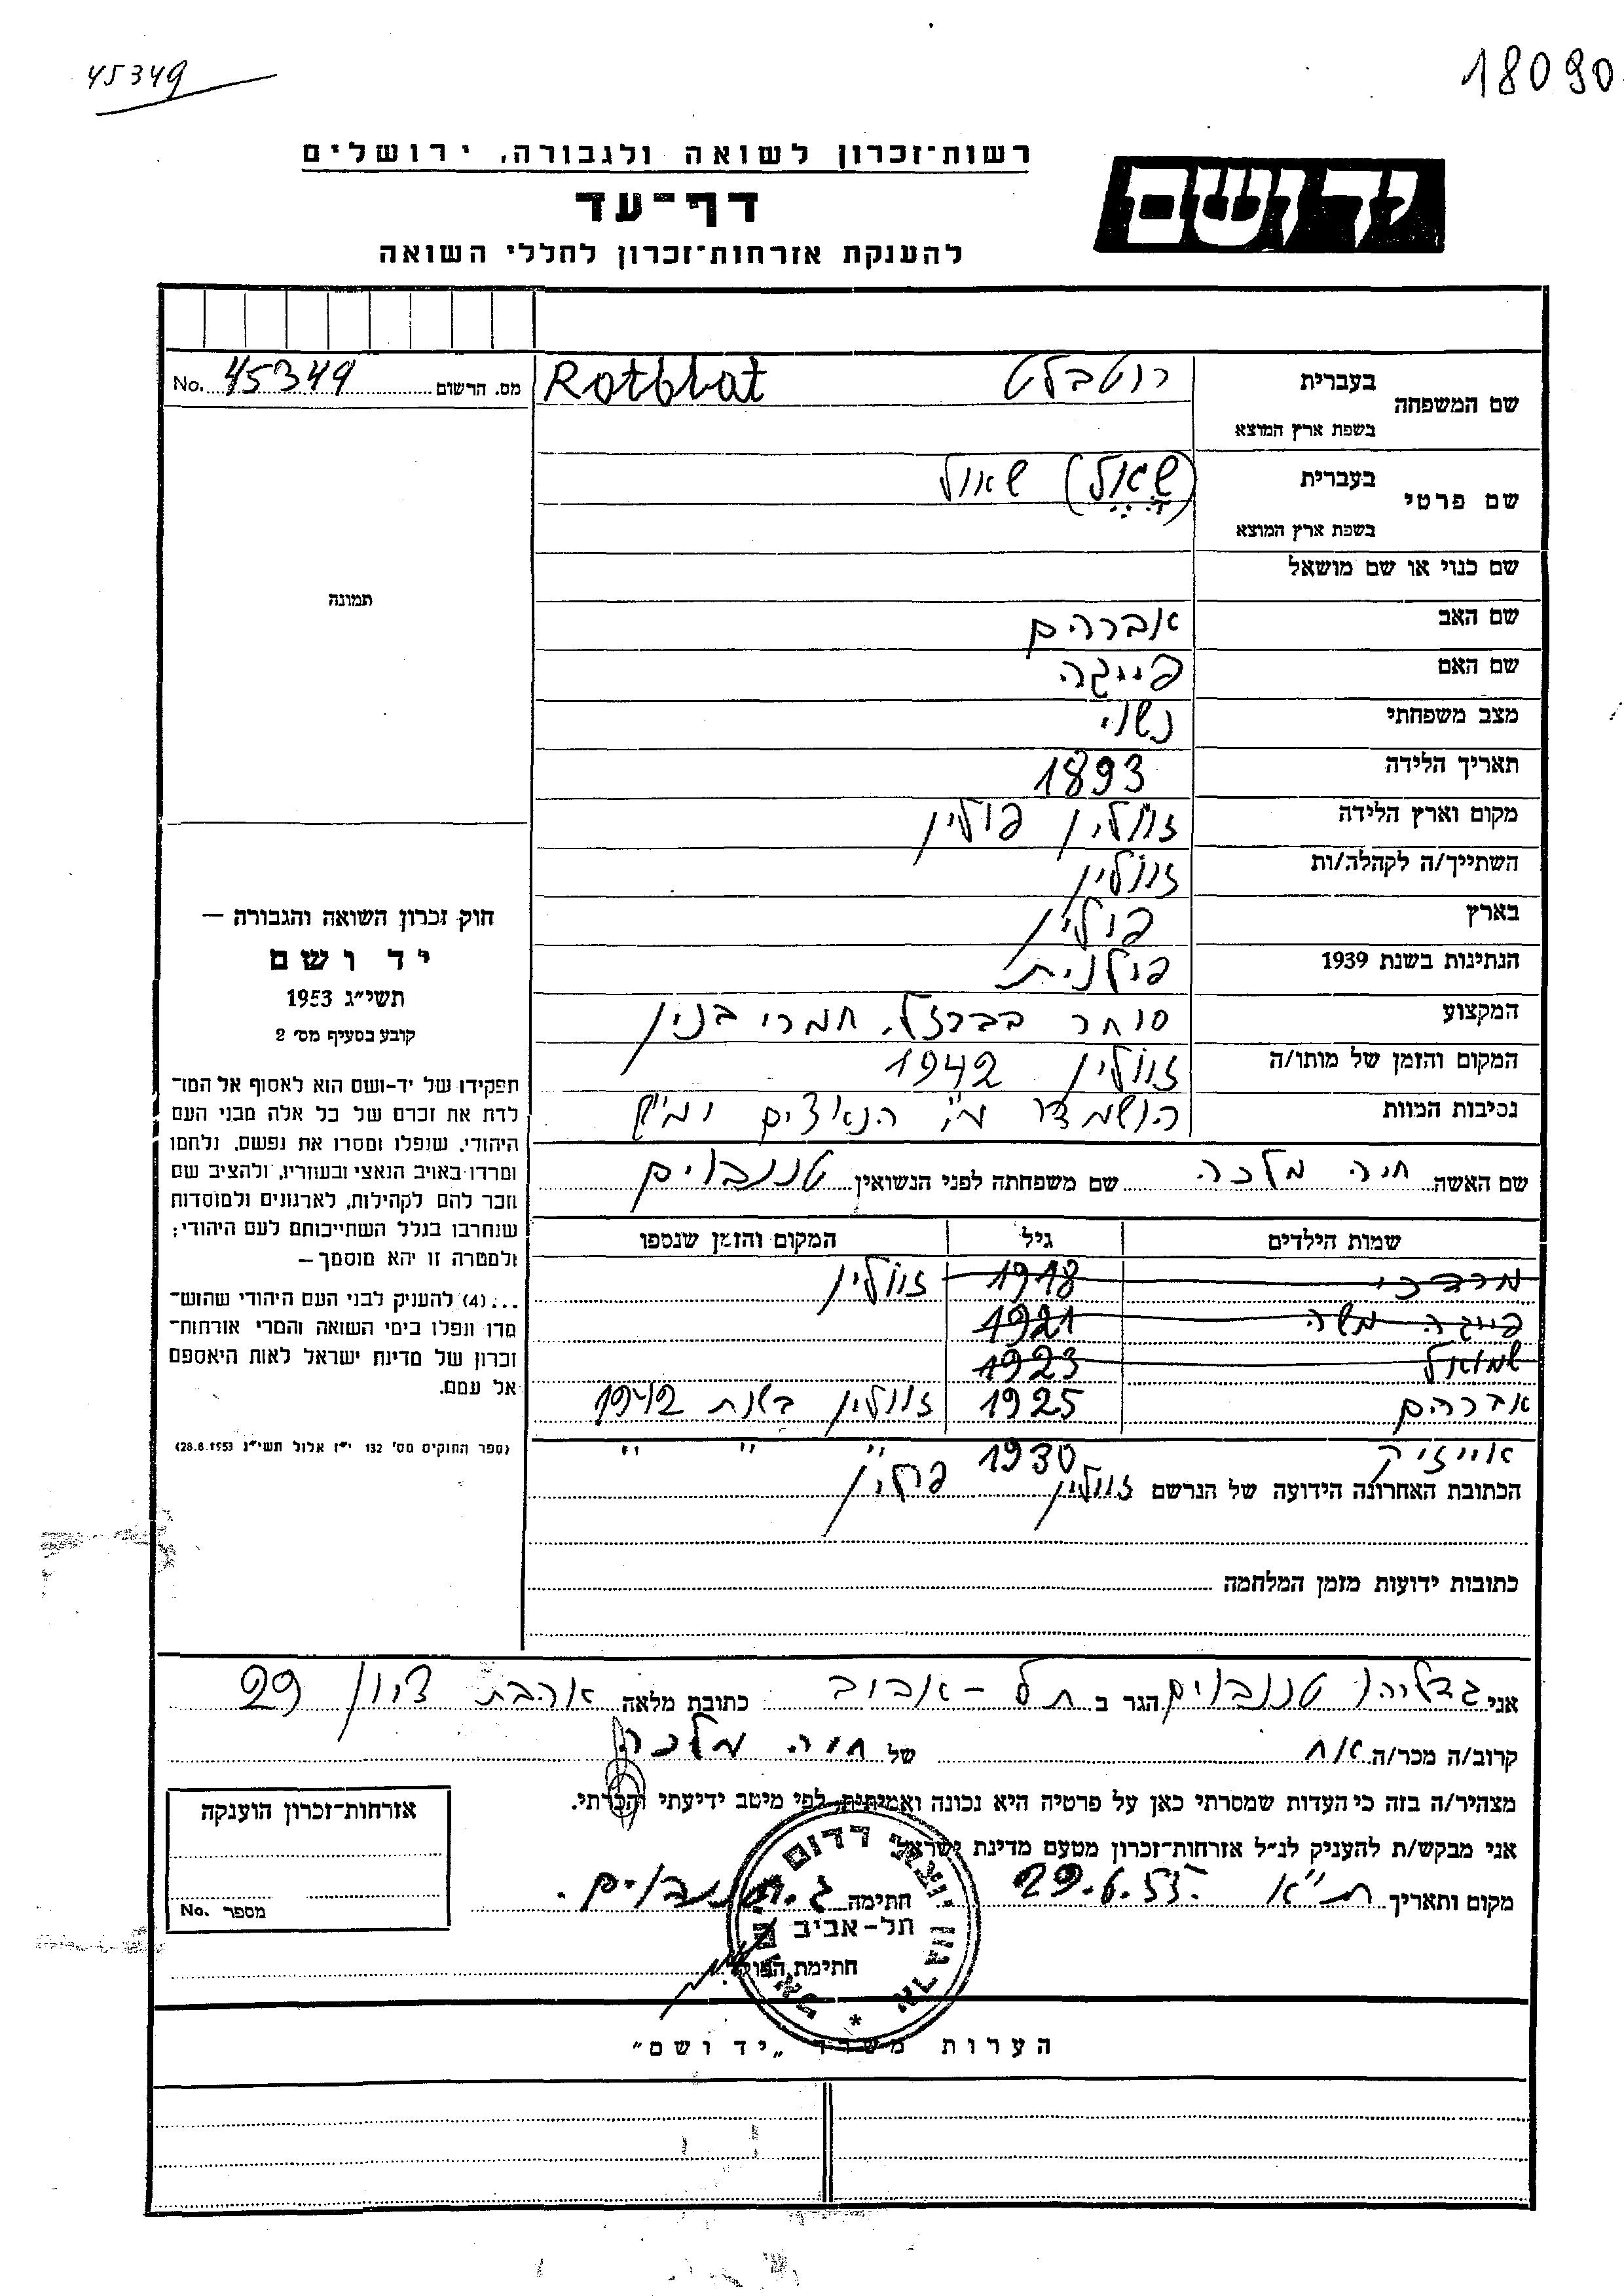 45349
18090
רשות־זכרון לשואה ולגבורה, ירושלים
ידושם
דף־עד
להענקת אזרחות־זכרון לחללי השואה
מס. הרשום 45349 No.
שם המשפחה
בעברית רוטבלט
בשפת ארץ המוצא Rotblat
שם פרטי
בעברית (שאול) שאול
בשפת ארץ המוצא
שם כנוי או שם מושאל
שם האב אברהם
שם האם פייגה
מצב משפחתי נשוי
תאריך הלידה 1893
מקום וארץ הלידה זוולין פולין
השתייך/ה לקהלה/ות זוולין
בארץ פולין
הנתינות בשנת 1939 פולנית
המקצוע סוחר בברזל, חמרי בנין
המקום והזמן של מותו/ה זוולין 1942
נסיבות המוות הושמד ע"י הנאצים ימ"ש
שם האשה חיה מלכה שם משפחתה לפני הנשואין טננבוים
שמות הילדים גיל המקום והזמן שנספו
מרדכי 1918 זוולין
פייגה משה 1921
שמואל 1923
אברהם 1925 זוולין בשנת 1942
אייזיק 1930 " " "
הכתובת האחרונה הידועה של הנרשם זוולין פולין
כתובות ידועות מזמן המלחמה
תמונה
חוק זכרון השואה והגבורה —
יד ושם
תשי״ג 1953
קובע בסעיף מס׳ 2
תפקידו של יד-ושם הוא לאסוף אל המו־
לדת את זכרם של כל אלה מבני העם
היהודי, שנפלו ומסרו את נפשם, נלחמו
ומרדו באויב הנאצי ובעוזריו, ולהציב שם
וזכר להם לקהילות, לארגונים ולמוסדות
שנחרבו בגלל השתייכותם לעם היהודי;
ולמטרה זו יהא מוסמך —
...(4) להעניק לבני העם היהודי שהוש־
מדו ונפלו בימי השואה והמרי אזרחות־
זכרון של מדינת ישראל לאות היאספם
אל עמם.
(ספר החוקים מס׳ 132 י״ז אלול תשי״ג 28.8.1953)
אני גדליהו טננבוים הגר ב תל-אביב כתובת מלאה אהבת ציון 29
קרוב/ה מכר/ה אח של חיה מלכה
מצהיר/ה בזה כי העדות שמסרתי כאן על פרטיה היא נכונה ואמיתית, לפי מיטב ידיעתי והכרתי.
אני מבקש/ת להעניק לנ״ל אזרחות־זכרון מטעם מדינת ישראל
מקום ותאריך ת"א 29.6.55 חתימה ג. טננבוים.
חתימת הפוקד
ארגון יוצאי רדום
תל-אביב
אזרחות־זכרון הוענקה
מספר No.
הערות משרד „יד ושם״